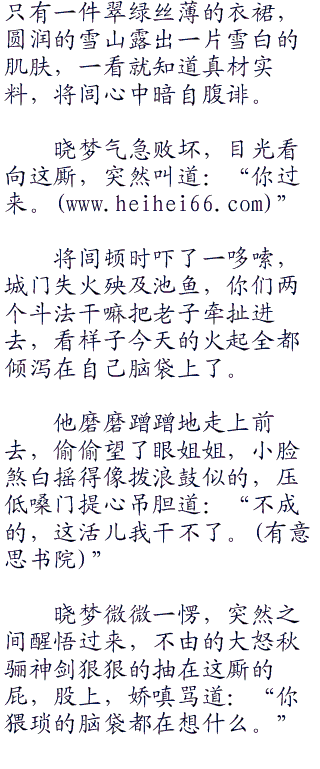 只有一件翠绿丝薄的衣裙，
圆润的雪山露出一片雪白的
肌肤，一看就知道真材实
料，将闾心中暗自腹诽。
晓梦气急败坏，目光看
向这厮，突然叫道：“你过
来。(www.heihei66.com)”
将闾顿时吓了一哆嗦，
城门失火殃及池鱼，你们两
个斗法干嘛把老子牵扯进
去，看样子今天的火起全都
倾泻在自己脑袋上了。
他磨磨蹭蹭地走上前
去，偷偷望了眼姐姐，小脸
煞白摇得像拨浪鼓似的，压
低嗓门提心吊胆道：“不成
的，这活儿我干不了。(有意
思书院)”
晓梦微微一愣，突然之
间醒悟过来，不由的大怒秋
骊神剑狠狠的抽在这厮的
屁，股上，娇嗔骂道：“你
猥琐的脑袋都在想什么。”